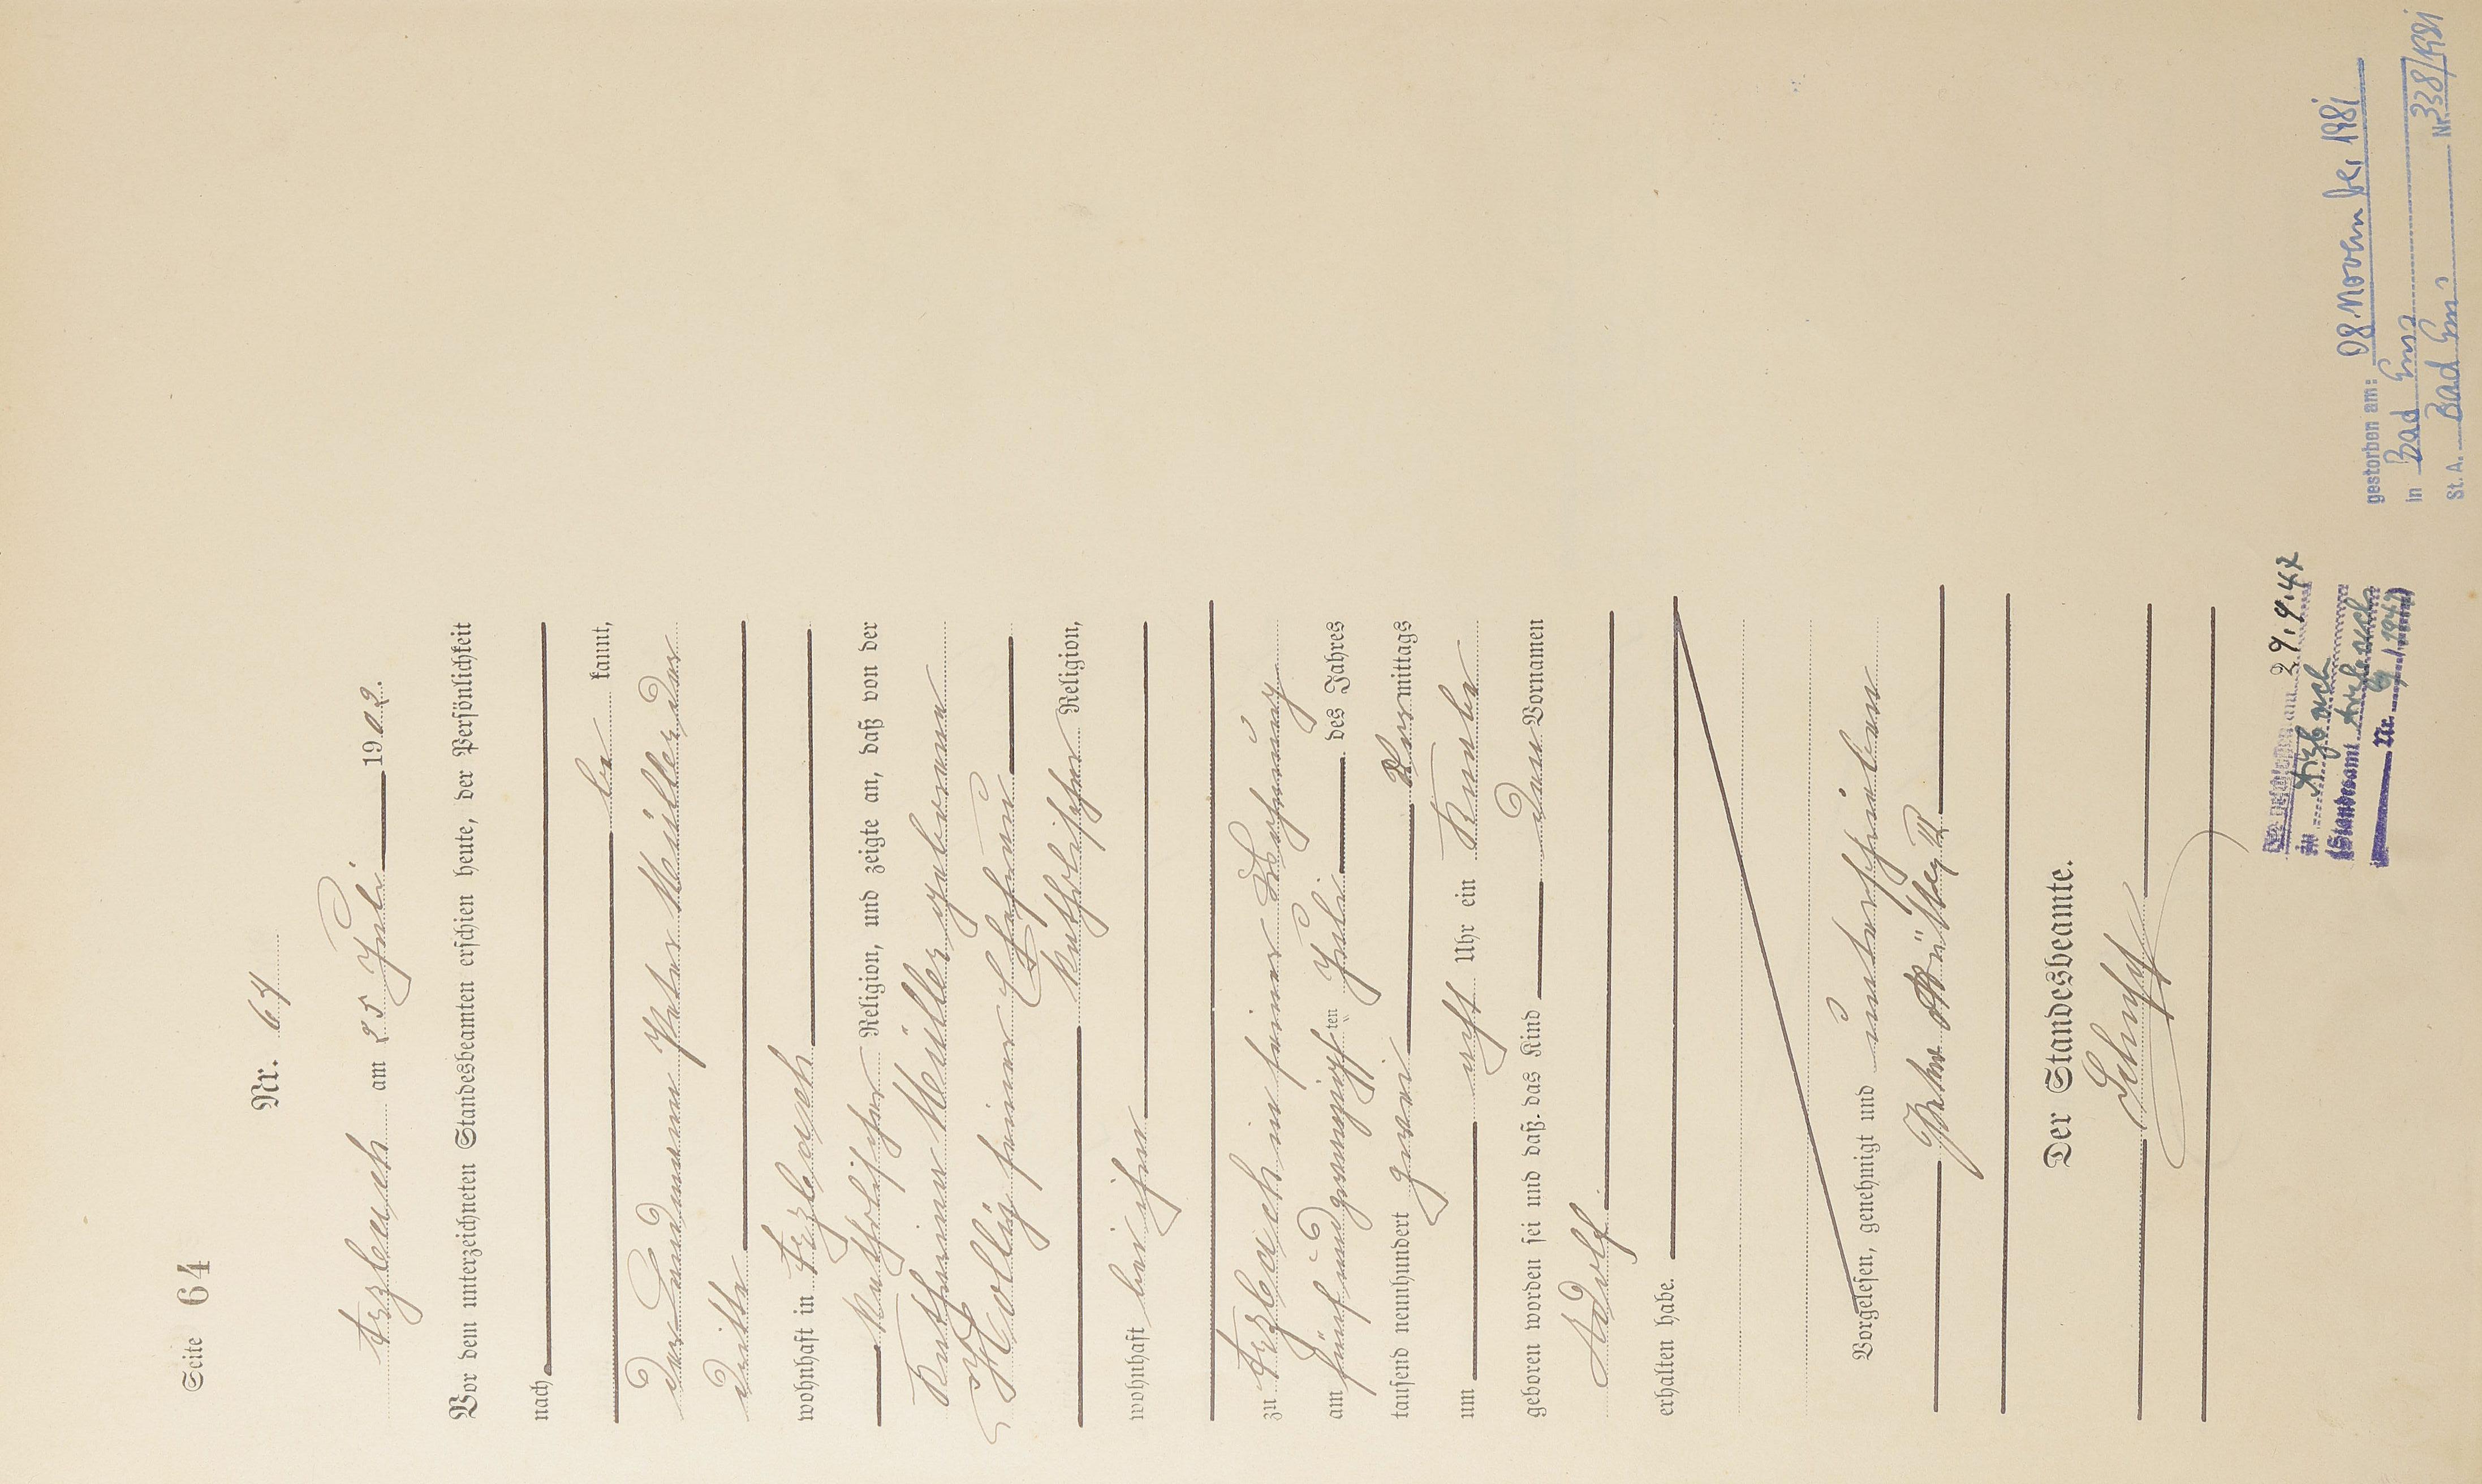 Seite 64
Nr. 64
Arzbach am 25 Juli 1902.
Vor dem unterzeichneten Standesbeamten erschien heute, der Persönlichkeit
nach
be kannt,
der Landmann Peter Müller der
Dritte
wohnhaft in Arzbach
katholischer Religion, und zeigte an, daß von der
Katharina Müller geborenen
Hollig seiner Ehefrau
katholischer Religion,
wohnhaft bei ihm
zu Arzbach in seiner Wohnung
am fünfundzwanzigsten Juli des Jahres
tausend neunhundert zwei mittags
um acht Uhr ein Knabe
geboren worden sei und daß das Kind den Vornamen
Adolf
erhalten habe.
Vorgelesen, genehmigt und unterschrieben
Peter Müller III
Der Standesbeamte.
am 29.9.47
in Arzbach
(Standesamt Arzbach
Nr. 9/1947)
gestorben am: 08. November 1981
in Bad Ems
St. A. Bad Ems Nr. 338/1981